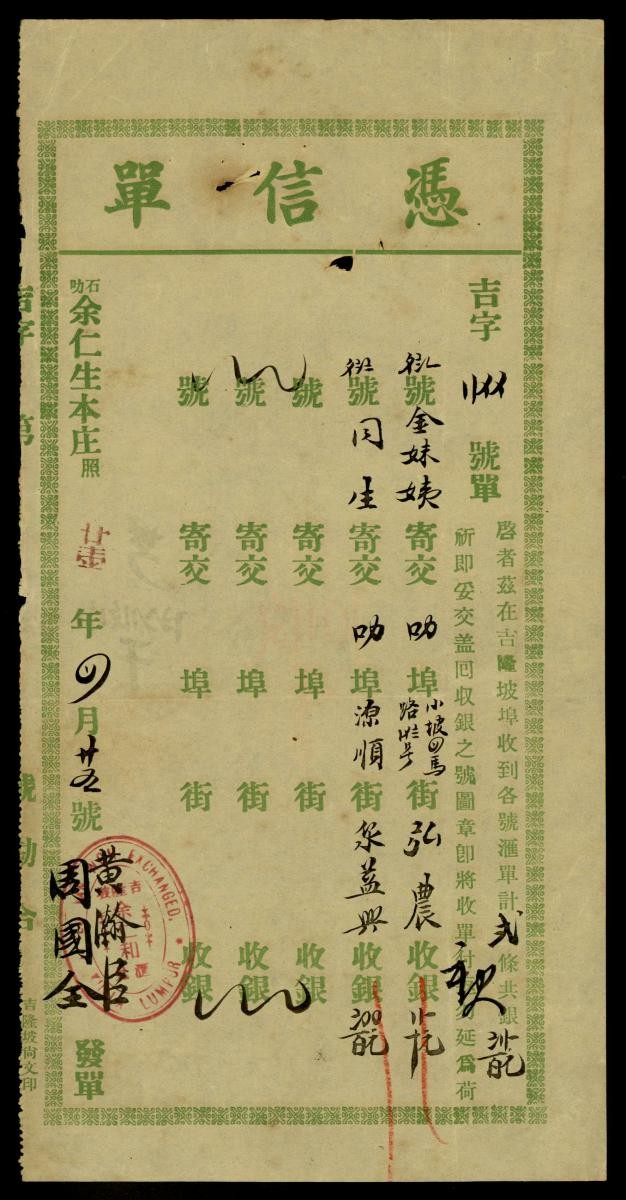 憑信單
吉字 號單
啓者茲在吉隆坡埠收到各號滙單計弍條共銀
祈即妥交盖囘收銀之號圖章即將收單付 延爲荷
號金妹姨寄交叻埠小坡四馬路 号街弘農收銀
號同生寄交叻埠源順街泉益興收銀
號 寄交 埠 街 收銀
號 寄交 埠 街 收銀
號 寄交 埠 街 收銀
石叻余仁生本庄照
廿壹年四月廿五號
黄瀚臣
周國全
發單
EXCHANGED.
吉隆坡
余仁和
滙
LUMPUR
吉字 第 號 勘合
吉隆坡尚文印